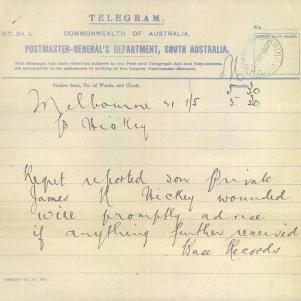 TELEGRAM.
COMMONWEALTH OF AUSTRALIA.
POSTMASTER-GENERAL'S DEPARTMENT, SOUTH AUSTRALIA.
This Message has been received subject to the Post and Telegraph Act and Regulations.
All complaints to be addressed in writing to the Deputy Postmaster-General.
Station from, No. of Words, and Check.
Melbourne 21 1/5 5 30
Hickey
Regret reported son Private
James H Hickey wounded
will promptly advise
if anything further received
Base Records